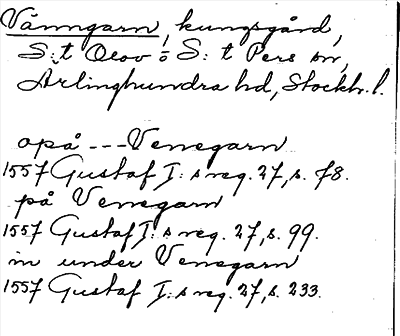 Vänngarn, kungsgård,
S:t Olov o S:t Pers sn,
Ärlinghundra hd, Stockh. l.
opå --- Venegarn
1557 Gustaf I:s reg. 27, s. 78.
på Venegarn
1557 Gustaf I:s reg. 27, s. 99.
in under Venegarn
1557 Gustaf I:s reg. 27, s. 233.